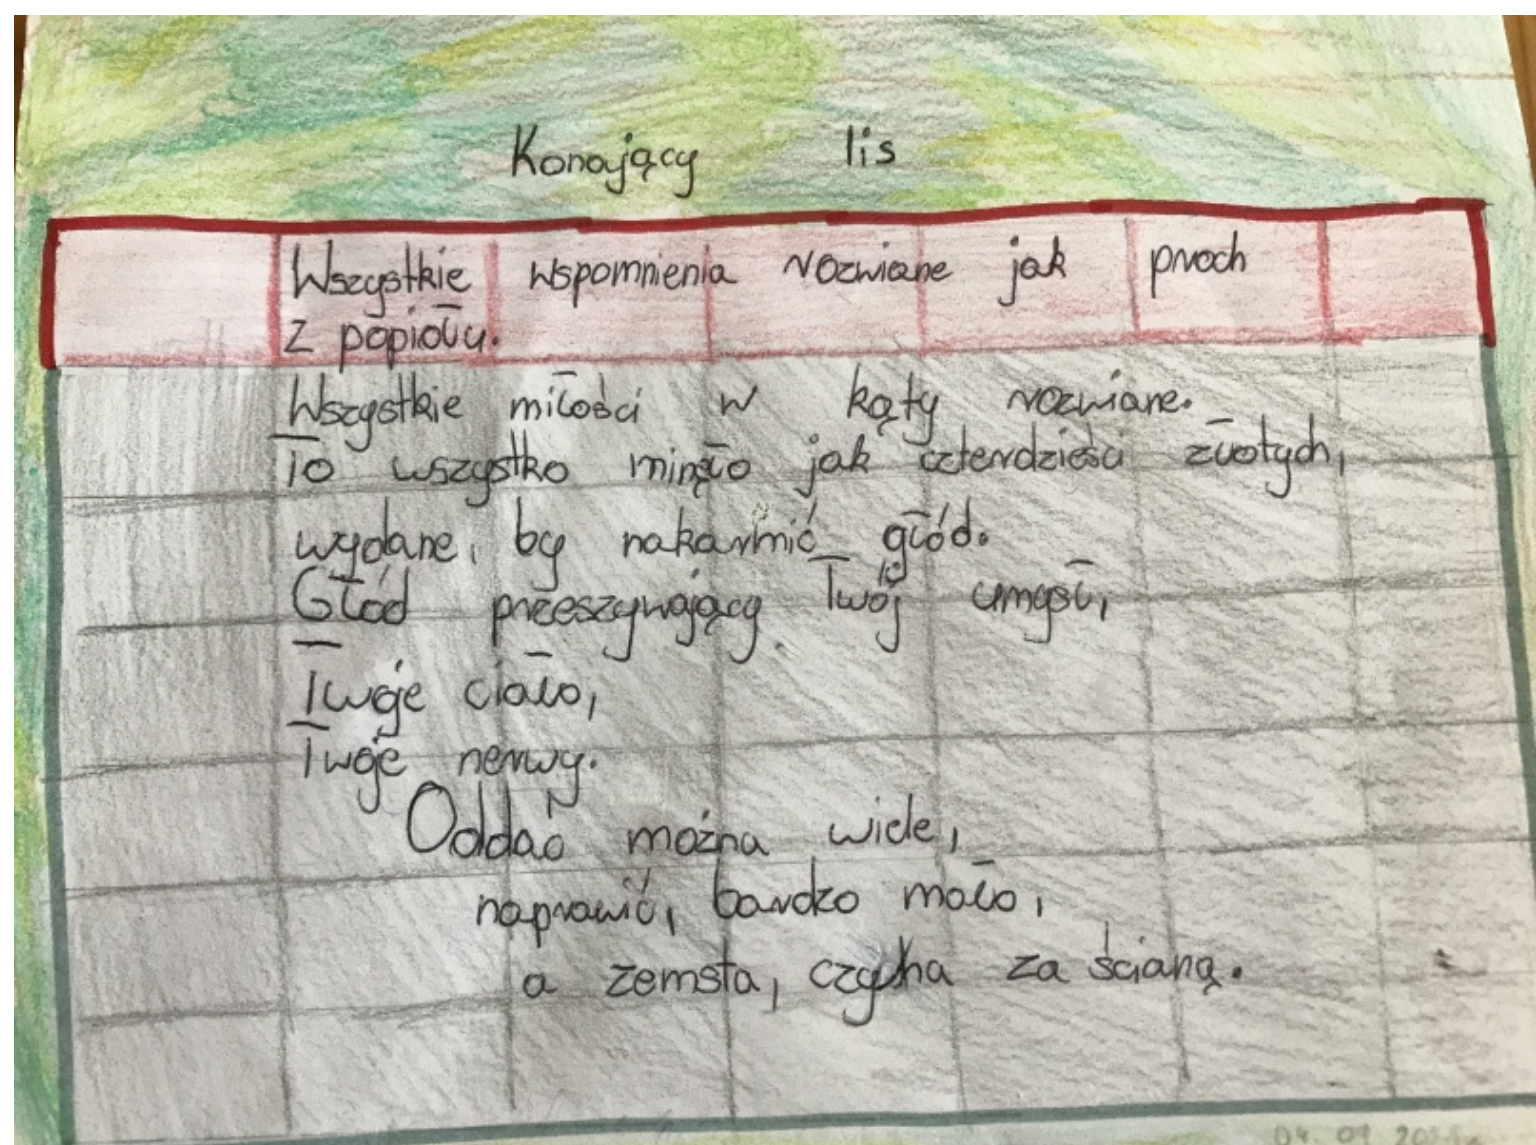 Konający lis
Wszystkie wspomnienia rozwiane jak proch
z popiołu.
Wszystkie miłości w kąty rozwiane.
To wszystko minęło jak czterdzieści złotych,
wydane, by nakarmić głód.
Głód przeszywający Twój umysł,
Twoje ciało,
Twoje nerwy.
Oddać można wiele,
naprawić, bardzo mało,
a zemsta, czyha za ścianą.